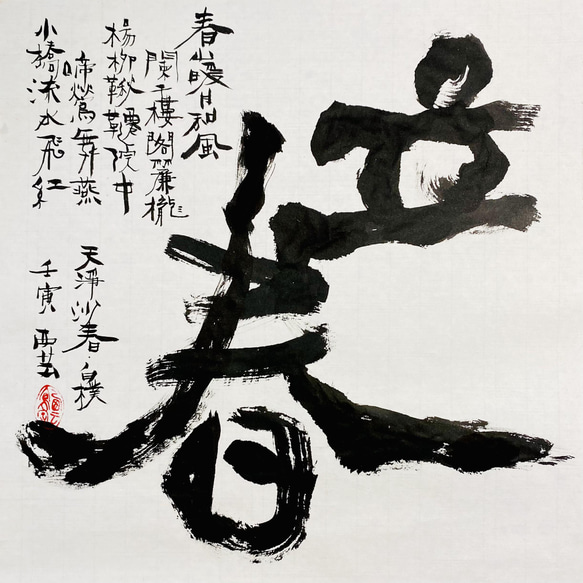 立春
春山暖日和風
闌干樓閣簾櫳
楊柳鞦韆院中
啼鶯舞燕
小橋流水飛紅
天淨沙春·白樸
壬寅 西芸